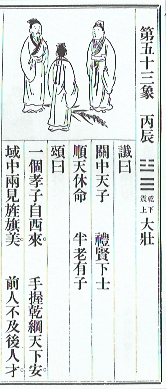 第五十三象 丙辰 ䷡ 乾下震上 大壯
讖曰
關中天子 禮賢下士
順天休命 半老有子
頌曰
一個孝子自西來。 手握乾綱天下安。
域中兩見旌旗美。 前人不及後人才。